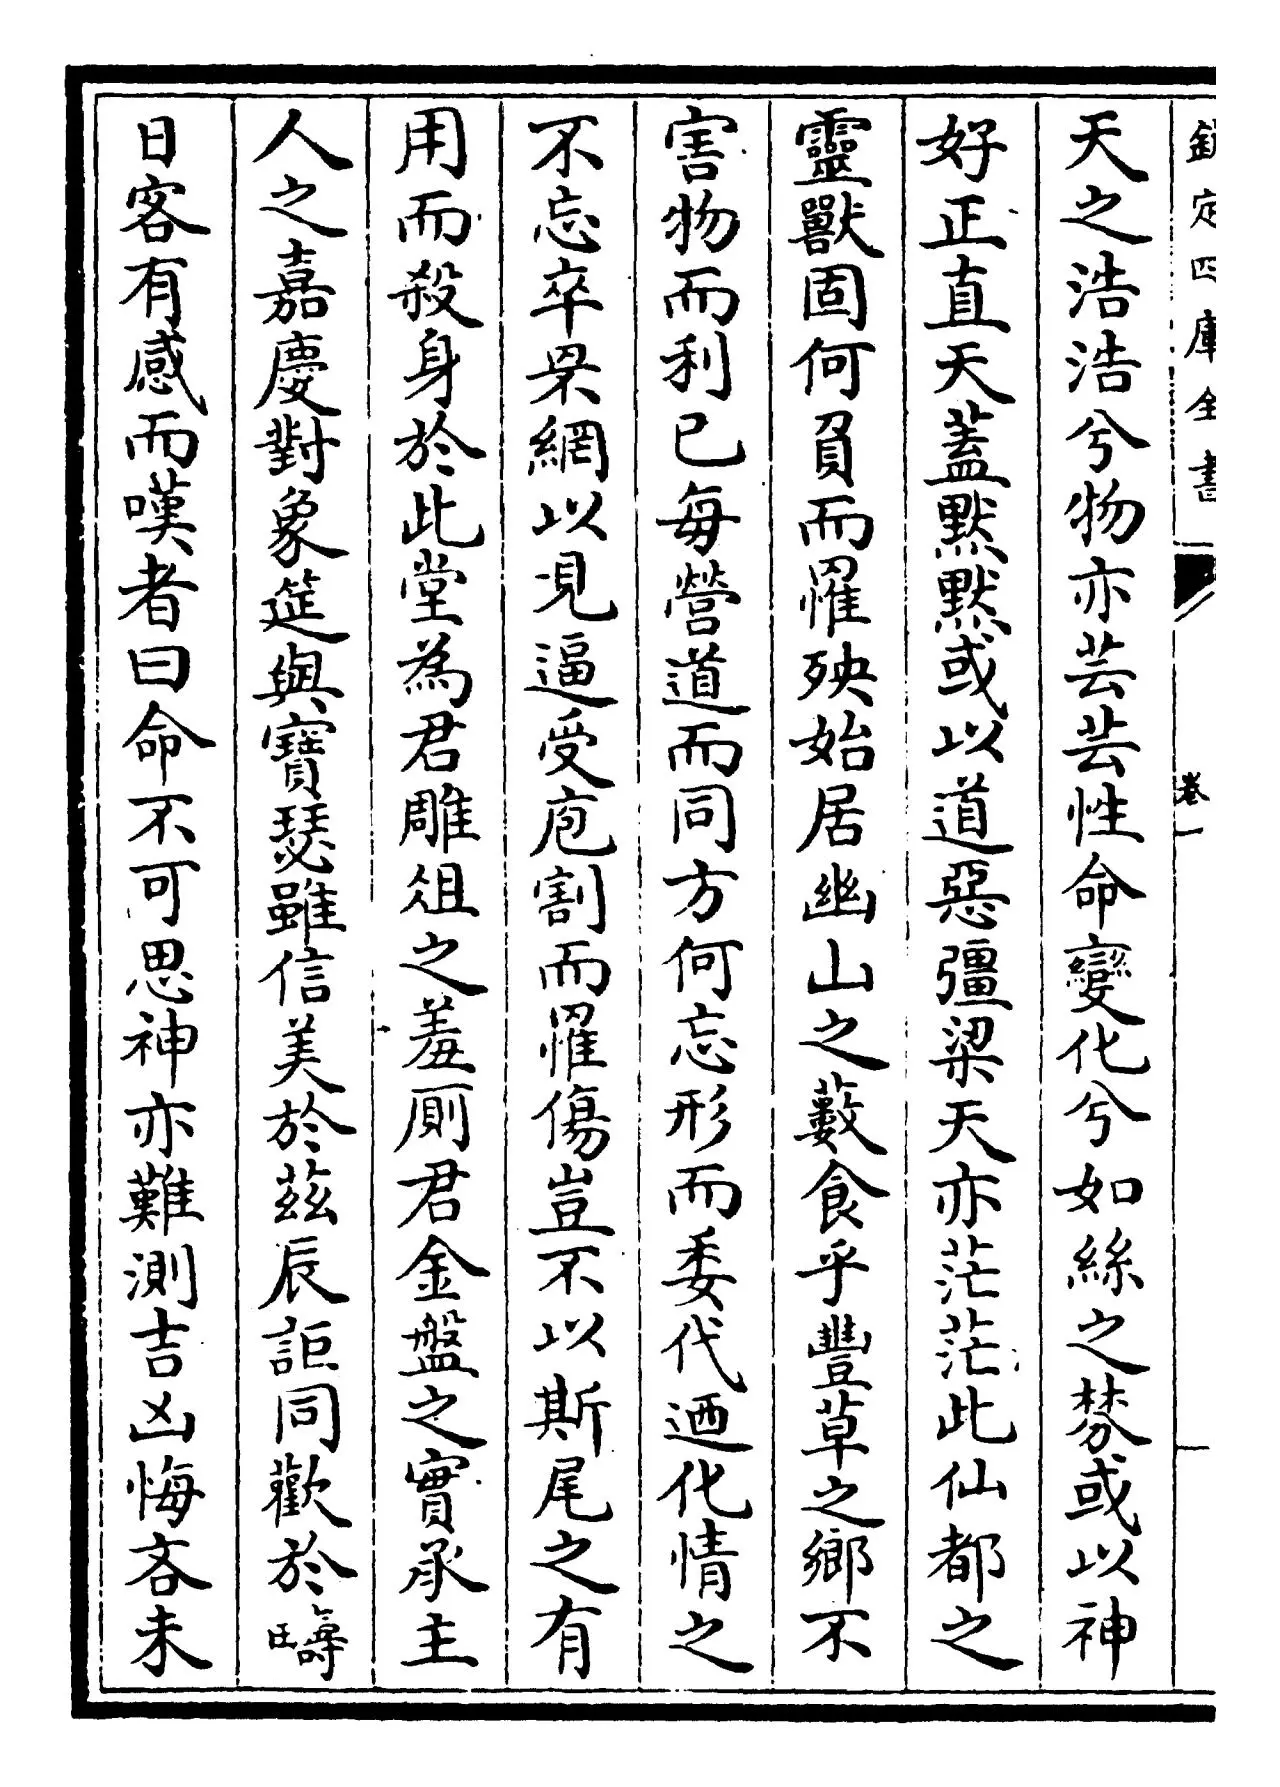 欽定四庫全書
卷一
天之浩浩兮物亦芸芸性命變化兮如絲之棼或以神
好正直天蓋默默或以道惡彊梁天亦茫茫此仙都之
靈獸固何負而罹殃始居幽山之藪食乎豐草之鄉不
害物而利已每營道而同方何忘形而委代迺化情之
不忘卒罘網以見逼受庖割而罹傷豈不以斯尾之有
用而殺身於此堂為君雕俎之羞厠君金盤之實承主
人之嘉慶對象筵與寶瑟雖信美於兹辰詎同歡於疇
日客有感而嘆者曰命不可思神亦難測吉凶悔吝未